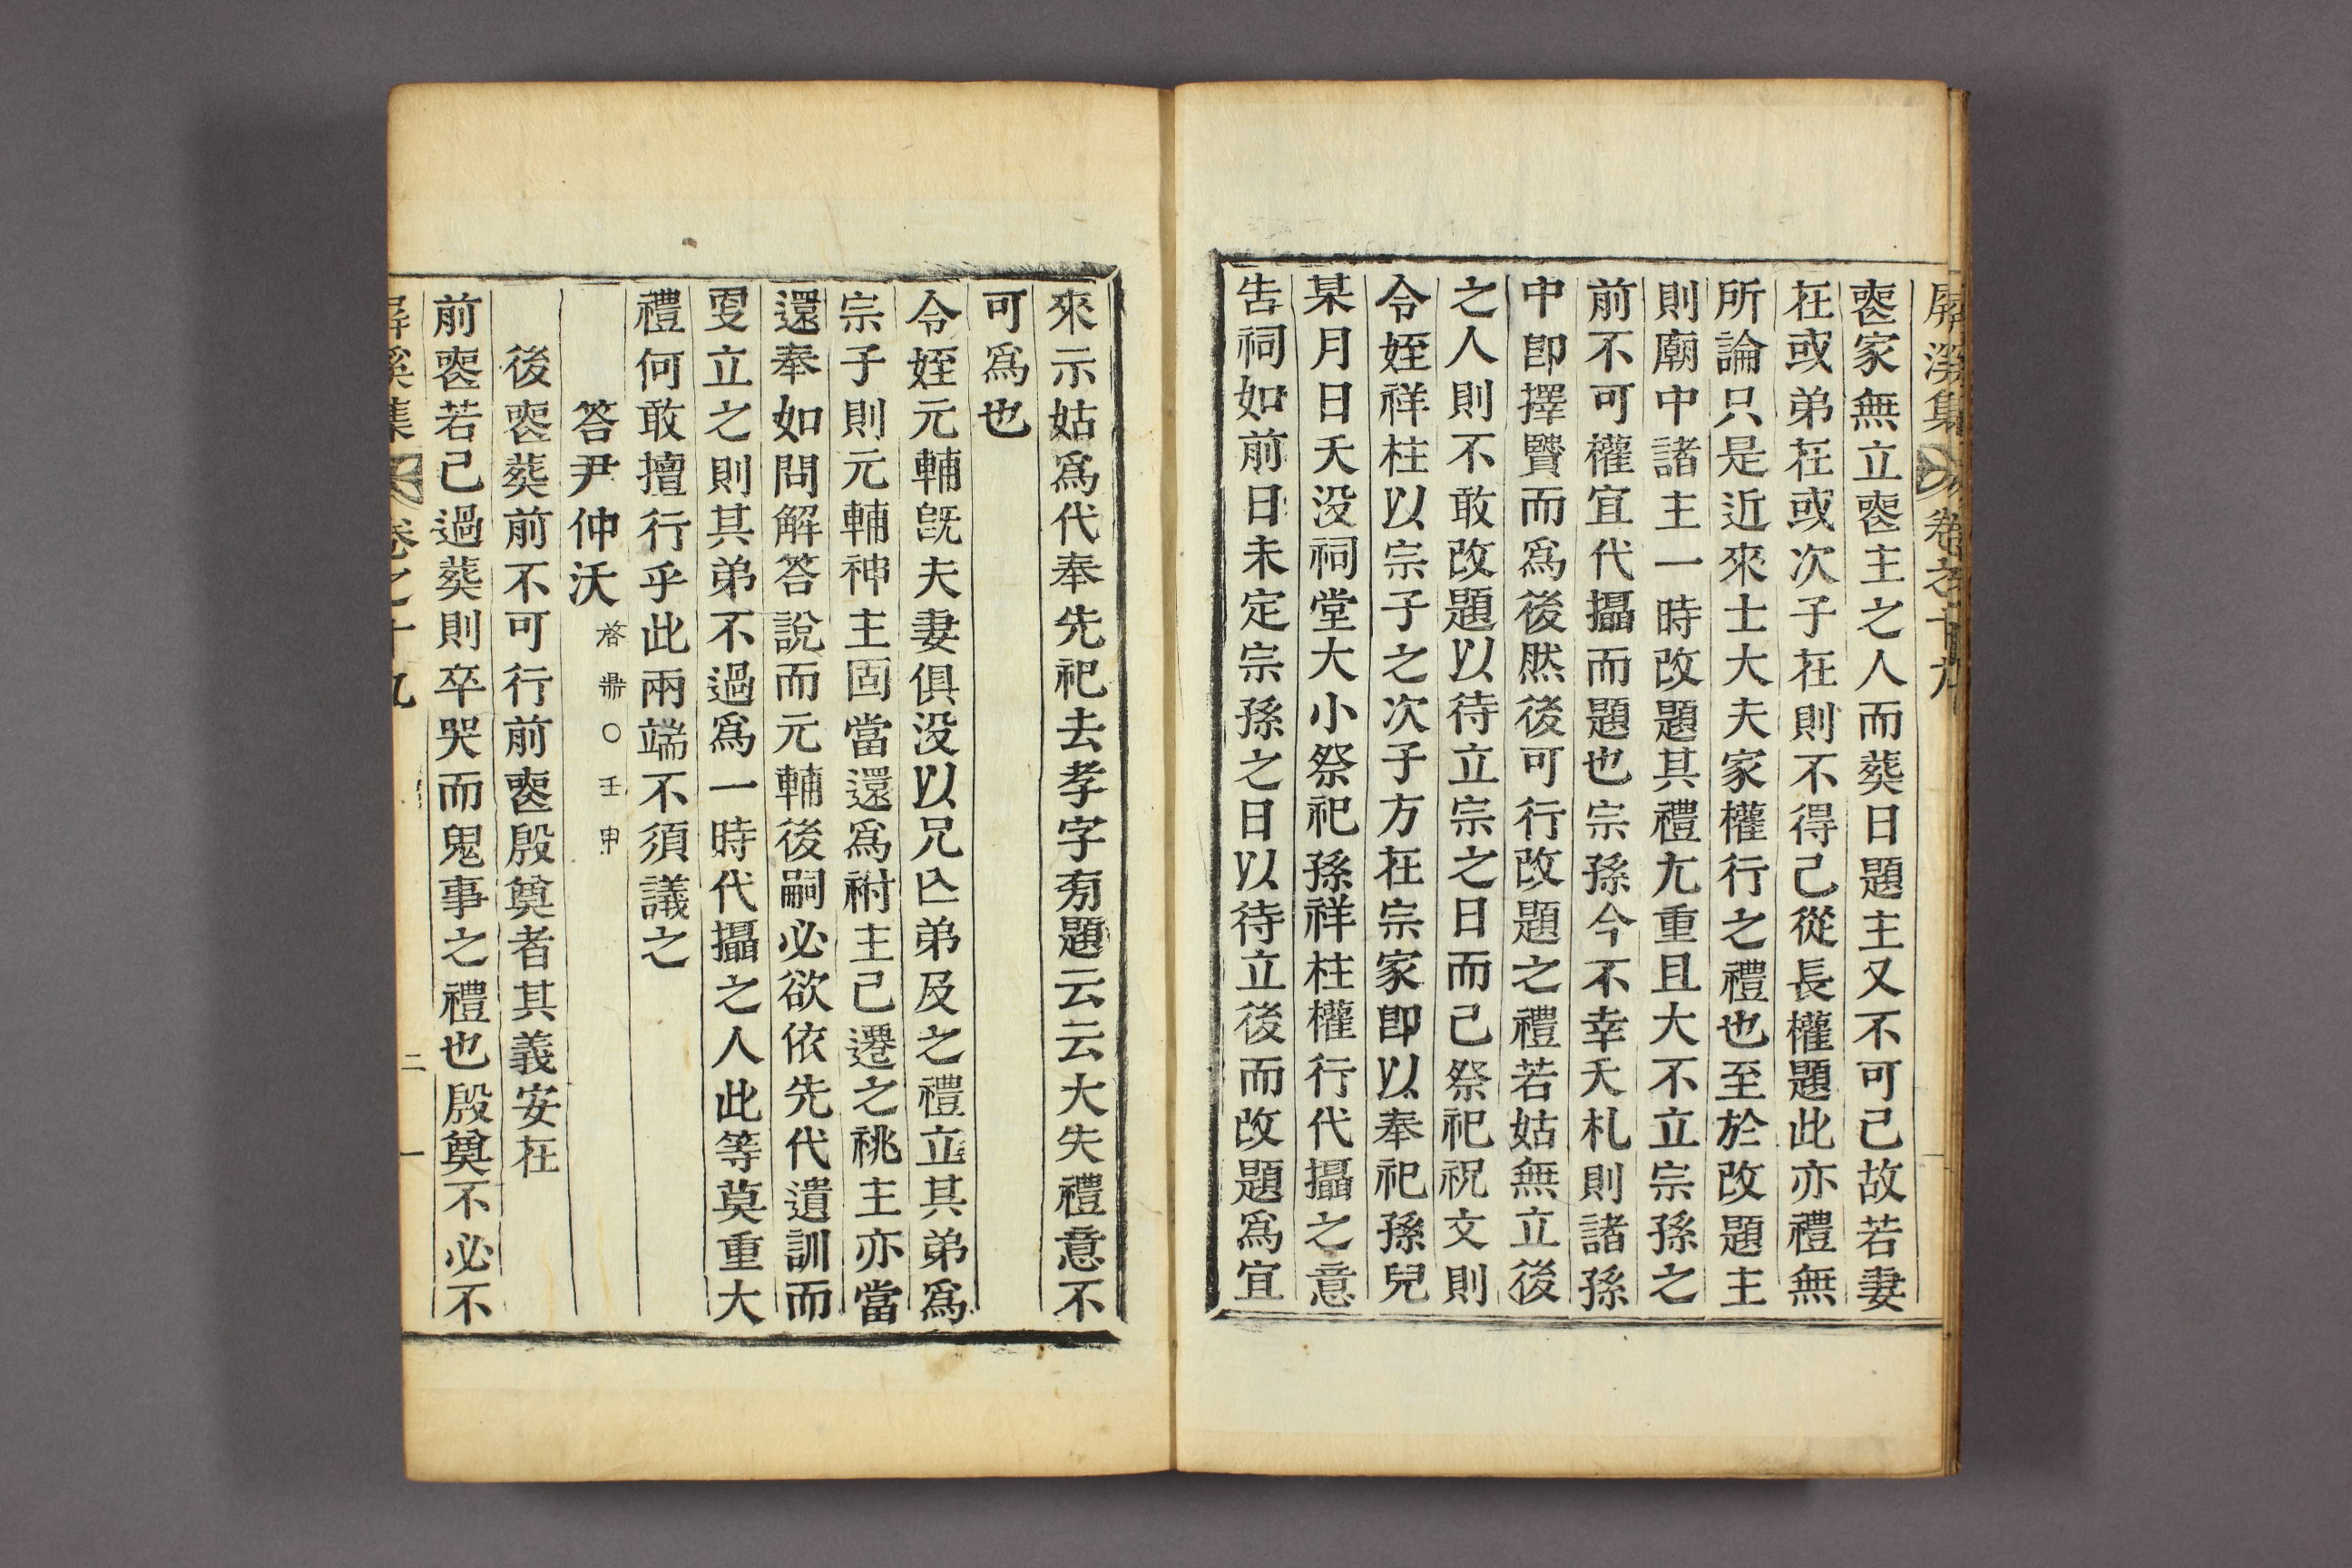 屏溪集 卷之十九
喪家無立喪主之人而葬日題主又不可已故若妻
在或弟在或次子在則不得已從長權題此亦禮無
所論只是近來士大夫家權行之禮也至於改題主
則廟中諸主一時改題其禮尢重且大不立宗孫之
前不可權宜代攝而題也宗孫今不幸夭札則諸孫
中卽擇賢而爲後然後可行改題之禮若姑無立後
之人則不敢改題以待立宗之日而已祭祀祝文則
令姪祥柱以宗子之次子方在宗家卽以奉祀孫兒
某月日夭没祠堂大小祭祀孫祥柱權行代攝之意
告祠如前日未定宗孫之日以待立後而改題爲宜
來示姑爲代奉先祀去孝字旁題云云大失禮意不
可爲也
令姪元輔旣夫妻俱没以兄亡弟及之禮立其弟爲
宗子則元輔神主固當還爲祔主已遷之祧主亦當
還奉如問解答說而元輔後嗣必欲依先代遺訓而
更立之則其弟不過爲一時代攝之人此等莫重大
禮何敢擅行乎此兩端不須議之
答尹仲沃 啓鼎○壬申
後喪葬前不可行前喪殷奠者其義安在
前喪若已過葬則卒哭而鬼事之禮也殷奠不必不
屏溪集 卷之十九 二